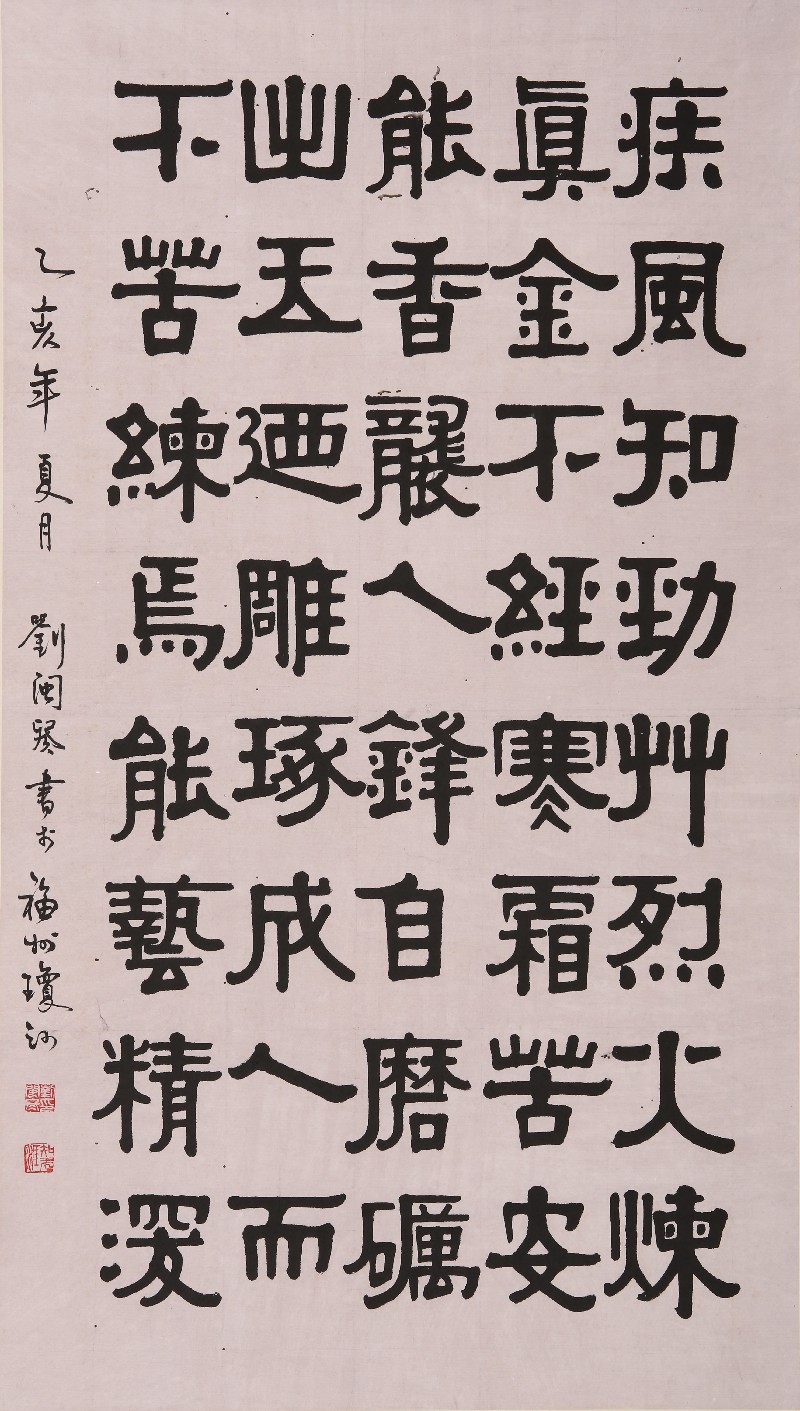 疾風知勁艸烈火煉
眞金不經寒霜苦安
能香襲人鋒自磨礪
出玉迺雕琢成人而
不苦練焉能藝精深
乙亥年夏月 劉閩琴書於福州瓊河